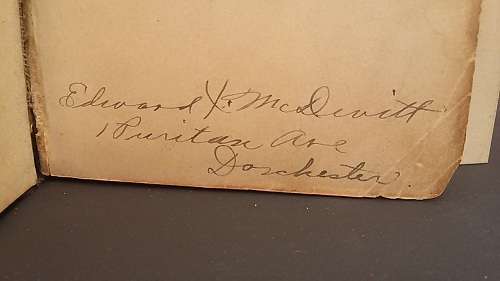 Edward X. McDevitt
1 Puritan Ave
Dorchester.